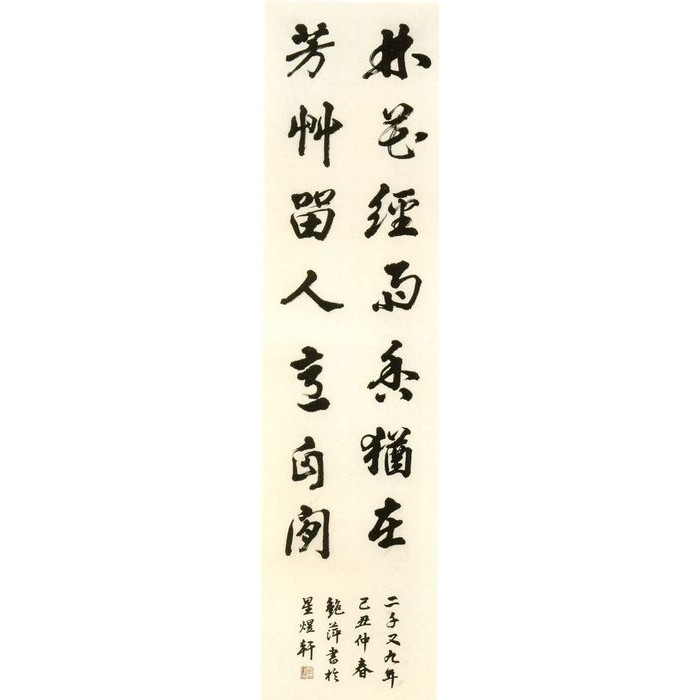 林花經雨香猶在
芳艸留人意自閒
二千又九年
己丑仲春
鮑萍書於
星煜軒